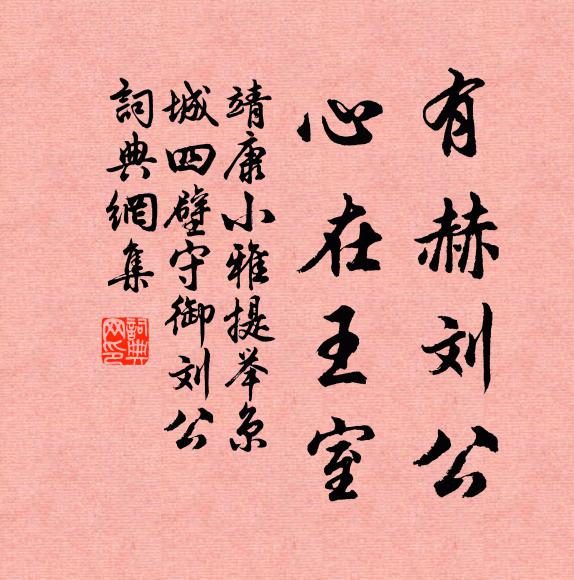 有赫刘公
心在王室
靖康小雅提举京
城四壁守御刘公
詞典網集
詞典網印